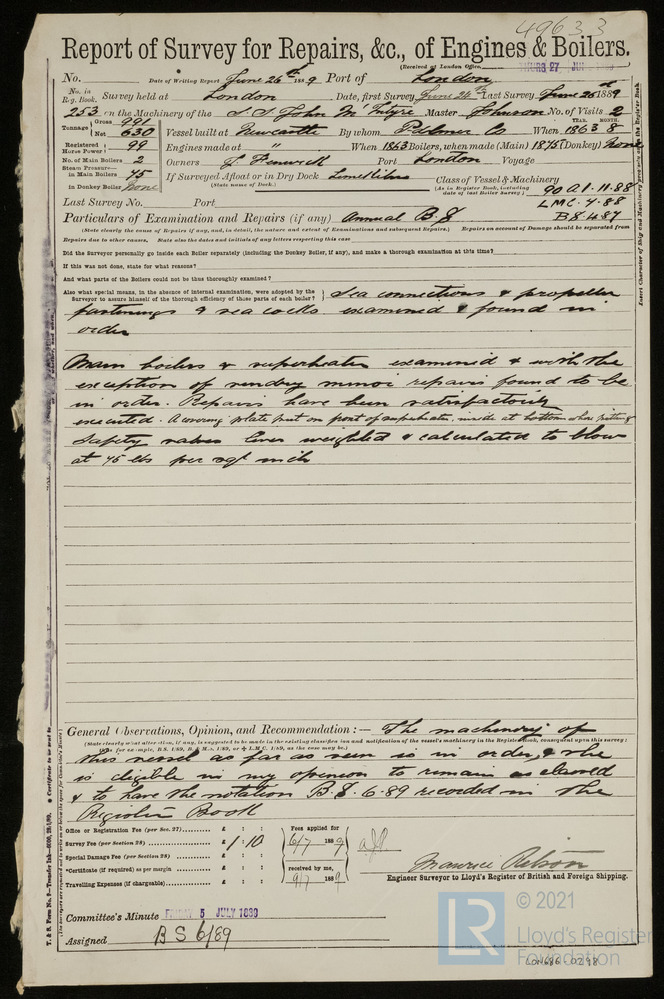 49633
Report of Survey for Repairs, &c., of Engines & Boilers.
(Received at London Office THURS 27 JUN 1889
No. Date of Writing Report June 26th 1889 Port of London
No. in Reg. Book. Survey held at London Date, first Survey June 24th Last Survey June 26th 1889
253 on the Machinery of the S.S. John McIntyre Master Johnson No. of Visits 2
Tonnage Gross 991 Net 630 Vessel built at Newcastle By whom Palmer Co When 1863 YEAR. 8 MONTH.
Registered Horse Power 99 Engines made at " When 1863 Boilers, when made (Main) 1875 (Donkey) None
No. of Main Boilers 2 Owners J Fenwick Port London Voyage
Steam Pressure— in Main Boilers 45 If Surveyed Afloat or in Dry Dock Limekilns
(State name of Dock.)
in Donkey Boiler None
Class of Vessel & Machinery (As in Register Book, including date of last Boiler Survey) 90 A1.11.88
LMC.4.88
BS.4.87
Last Survey No. Port
Particulars of Examination and Repairs (if any) Annual B.S
(State clearly the cause of Repairs if any, and, in detail, the nature and extent of Examinations and subsequent Repairs.) Repairs on account of Damage should be separated from
Repairs due to other causes. State also the dates and initials of any letters respecting this case
Did the Surveyor personally go inside each Boiler separately (including the Donkey Boiler, if any), and make a thorough examination at this time?
If this was not done, state for what reasons?
And what parts of the Boilers could not be thus thoroughly examined?
Also what special means, in the absence of internal examination, were adopted by the Surveyor to assure himself of the thorough efficiency of those parts of each boiler? Sea connections & propeller
fastenings & sea cocks examined & found in
order
Main boilers & superheater examined & with the
exception of sundry minor repairs found to be
in order. Repairs have been satisfactorily
executed. A covering plate put on front of superheater, inside at bottom where pitting
Safety valves lever weighted & calculated to blow
at 45 lbs per sq inch
General Observations, Opinion, and Recommendation:— The machinery of
(State clearly what alteration, if any, is suggested to be made in the existing classification and notification of the vessel's machinery in the Register Book, consequent upon this survey;
this vessel as far as seen is in order, & she
is eligible in my opinion to remain as classed
& to have the notation B.S. 6.89 recorded in the
Register Book
Office or Registration Fee (per Sec. 27) £ : :
Survey Fee (per Section 28) £ 1:10
Special Damage Fee (per Section 28) £ : :
Certificate (if required) as per margin £ : :
Travelling Expenses (if chargeable) £ : :
Fees applied for
6/7 1889
received by me,
9/7 1889
Maurice
Engineer Surveyor to Lloyd's Register of British and Foreign Shipping.
Committee's Minute FRIDAY 5 JULY 1889
Assigned BS 6/89
LR © 2021
Lloyd's Register
Foundation
LON686-0298